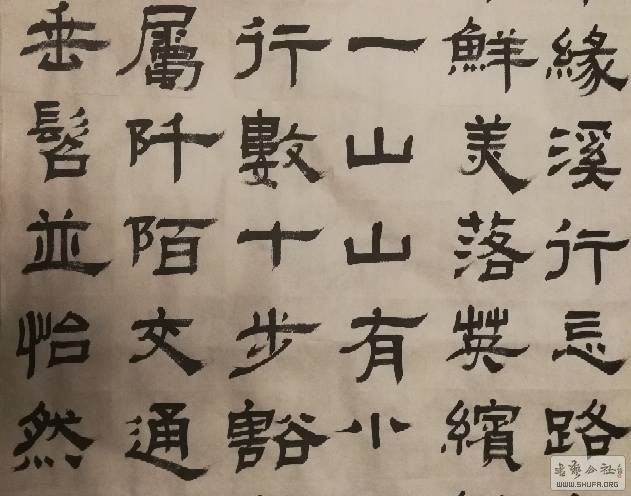 緣溪行忘路
鮮美落英繽
一山山有小
行數十步豁
屬阡陌交通
垂髫並怡然
WWW.SHUFA.ORG